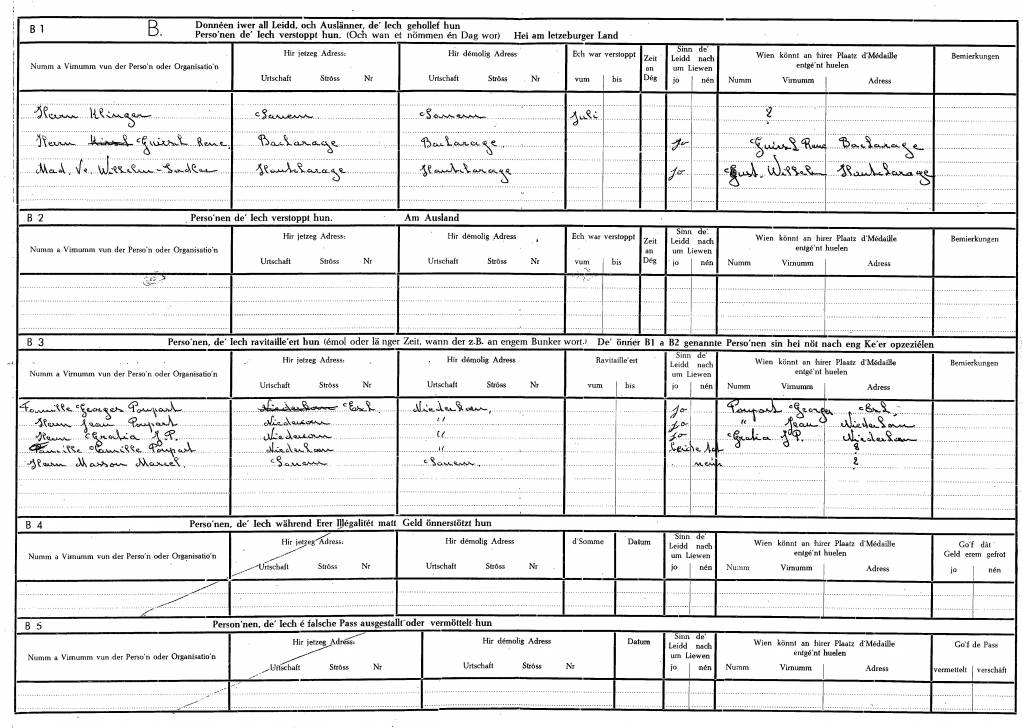 B 1 B. Donnéen iwer all Leidd, och Auslänner, de' Iech gehollef hun
Perso'nen de' Iech verstoppt hun. (Och wan et nömmen én Dag wor) Hei am letzeburger Land
Numm a Virnumm vun der Perso'n oder Organisatio'n Hir jetzeg Adress: Hir démolig Adress Ech war verstoppt Zeit an Dég Sinn de' Leidd nach um Liewen Wien könnt an hirer Plaatz d'Médaille entgé'nt huelen Bemierkungen
Urtschaft Ströss Nr Urtschaft Ströss Nr vum bis jo nén Numm Virnumm Adress
Harn Klinger Sanem Sanem Juli ?
Harn Bascharage Bascharage jo René Bascharage
Mad. Ve. Hautcharage Hautcharage jo Gust. Hautcharage
B 2 Perso'nen de' Iech verstoppt hun. Am Ausland
Numm a Virnumm vun der Perso'n oder Organisatio'n Hir jetzeg Adress: Hir démolig Adress Ech war verstoppt Zeit an Dég Sinn de' Leidd nach um Liewen Wien könnt an hirer Plaatz d'Médaille entgé'nt huelen Bemierkungen
Urtschaft Ströss Nr Urtschaft Ströss Nr vum bis jo nén Numm Virnumm Adress
B 3 Perso'nen, de' Iech ravitaille'ert hun (émol oder lä nger Zeit, wann der z.B. an engem Bunker wort.) De' önnier B1 a B2 genannte Perso'nen sin hei nöt nach eng Ke'er opzeziélen
Numm a Virnumm vun der Perso'n oder Organisatio'n Hir jetzeg Adress: Hir démolig Adress Ravitaille'ert Sinn de' Leidd nach um Liewen Wien könnt an hirer Plaatz d'Médaille entgé'nt huelen Bemierkungen
Urtschaft Ströss Nr Urtschaft Ströss Nr vum bis jo nén Numm Virnumm Adress
Famille Georges Poupart Niederkorn Niederkorn, jo Poupart Georges
Harn Jean Poupart Niedercorn " jo " Jean Niederkorn
Harn Gratia J.P. Niedercorn " jo Gratia J.P. Niederkorn
Famille Camille Poupart Niederkorn " ?
Harn Masson Marcel. Sanem Sanem. nein ?
B 4 Perso'nen, de' Iech während Erer Illégalitét matt Geld önnerstötzt hun
Numm a Virnumm vun der Perso'n oder Organisatio'n Hir jetzeg Adress: Hir démolig Adress d'Somme Datum Sinn de' Leidd nach um Liewen Wien könnt an hirer Plaatz d'Médaille entgé'nt huelen Go'f dât Geld erem gefrot
Urtschaft Ströss Nr Urtschaft Ströss Nr jo nén Numm Virnumm Adress jo nén
B 5 Person'nen, de' Iech é falsche Pass ausgestallt oder vermöttelt hun
Numm a Virnumm vun der Perso'n oder Organisatio'n Hir jetzeg Adress: Hir démolig Adress Datum Sinn de' Leidd nach um Liewen Wien könnt an hirer Plaatz d'Médaille entgé'nt huelen Go'f de Pass
Urtschaft Ströss Nr Urtschaft Ströss Nr jo nén Numm Virnumm Adress vermettelt verschâft